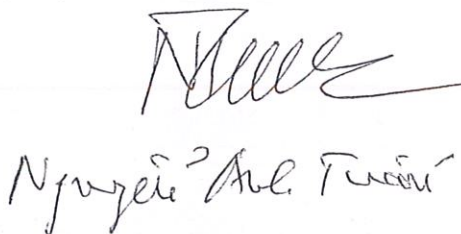 Nguyễn Anh Tuấn